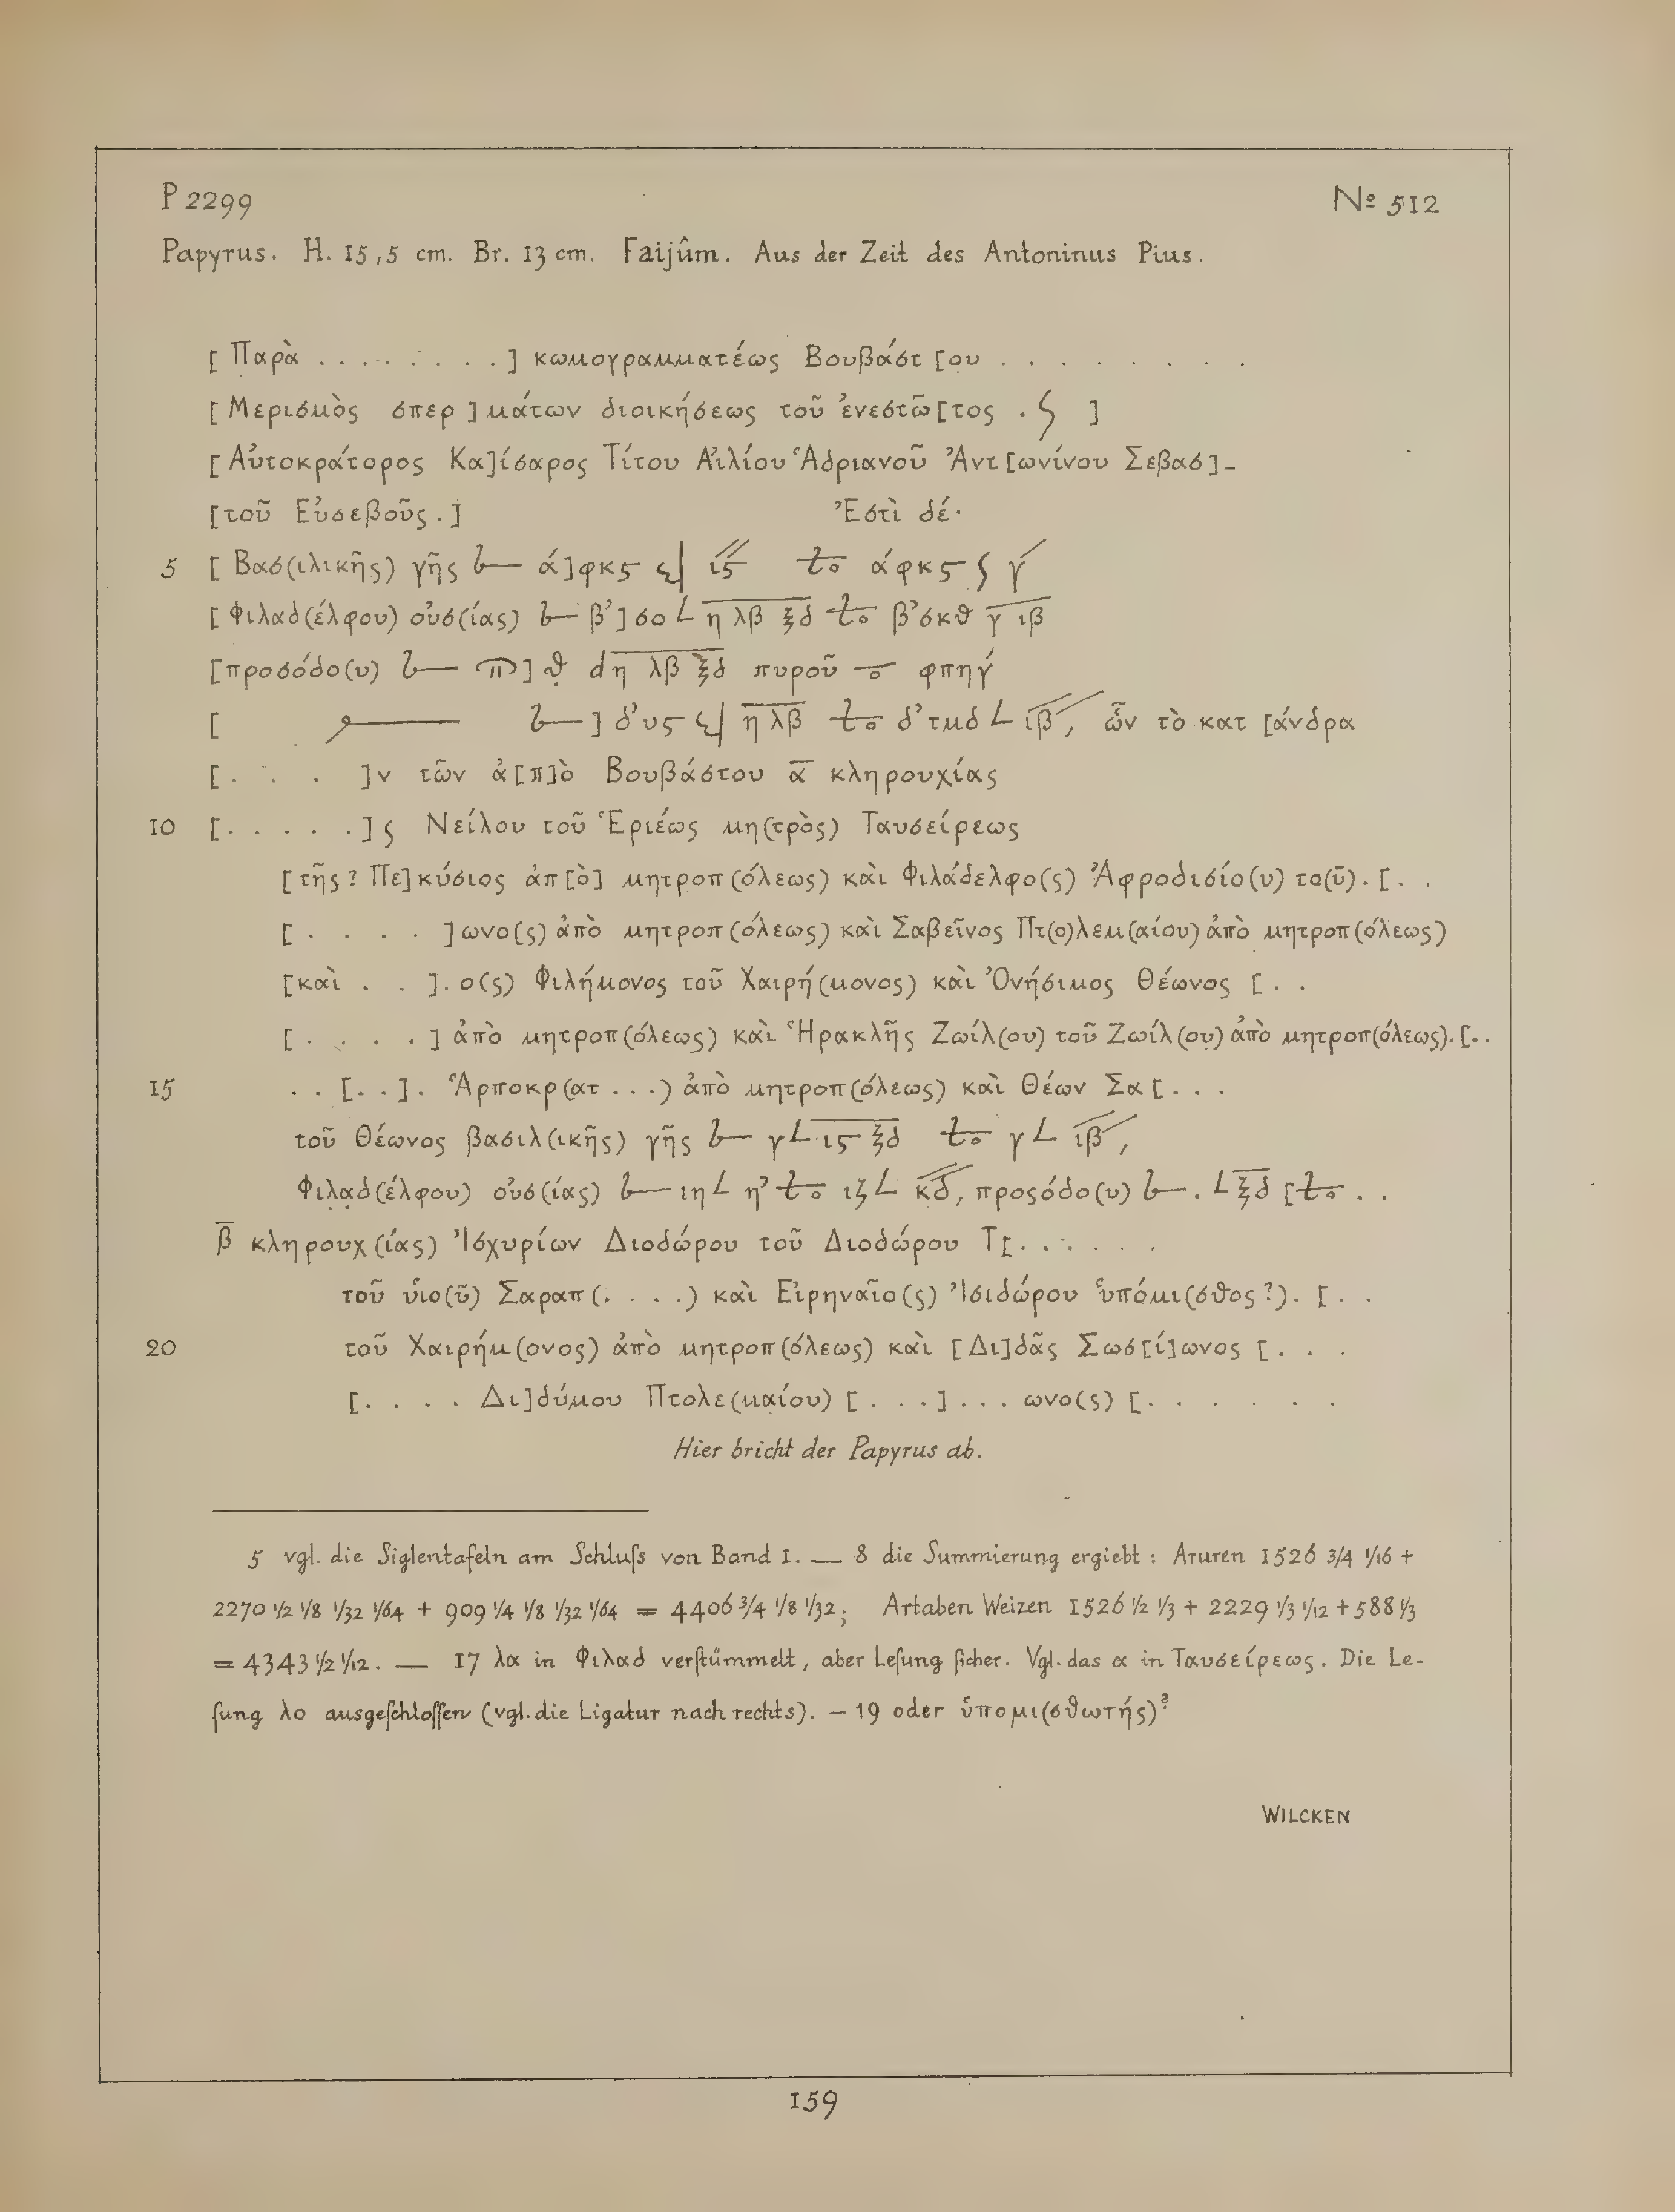 P 2299 Nº 512
Papyrus. H. 15,5 cm. Br. 13 cm. Faijûm. Aus der Zeit des Antoninus Pius.
[Παρὰ . . . . . . . .] κωμογραμματέως Βουβάστ[ου . . . . . . . .
[Μερισμὸς σπερ]μάτων διοικήσεως τοῦ ἐνεστῶ[τος . ϛ ]
[Αὐτοκράτορος Κα]ίσαρος Τίτου Αἰλίου Ἁδριανοῦ Ἀντ[ωνίνου Σεβασ]-
[τοῦ Εὐσεβοῦς.] Ἐστὶ δέ·
5 [Βασ(ιλικῆς) γῆς ά]φκϛ ιϛ άφκϛ γ
[Φιλαδ(έλφου) οὐσ(ίας) β’]σο L η λβ ξδ β’σκθ γ ιβ
[προσόδο(υ) ]θ d η λβ ξδ πυροῦ φπηγ
[ ] δ’υϛ η λβ δ’τμδ L ιβ, ὧν τὸ κατ[άνδρα
[. . . ]ν τῶν ἀ[π]ὸ Βουβάστου α κληρουχίας
10 [. . . . . .]ς Νείλου τοῦ Ἑριέως μη(τρὸς) Ταυσείρεως
[τῆς? Πε]κύσιος ἀπ[ὸ] μητροπ(όλεως) καὶ Φιλάδελφο(ς) Ἀφροδισίο(υ) το(ῦ) . [. .
[. . . . ]ωνο(ς) ἀπὸ μητροπ(όλεως) καὶ Σαβεῖνος Πτ(ο)λεμ(αίου) ἀπὸ μητροπ(όλεως)
[καὶ . . ] . ο(ς) Φιλήμονος τοῦ Χαιρή(μονος) καὶ Ὀνήσιμος Θέωνος [. .
[. . . .] ἀπὸ μητροπ(όλεως) καὶ Ἡρακλῆς Ζωίλ(ου) τοῦ Ζωίλ(ου) ἀπὸ μητροπ(όλεως). [. .
15 . . [. .] . Ἁρποκρ(ατ . . .) ἀπὸ μητροπ(όλεως) καὶ Θέων Σα[. . .
τοῦ Θέωνος βασιλ(ικῆς) γῆς γ L ιϛ ξδ γ L ιβ,
Φιλαδ(έλφου) οὐσ(ίας) ιη L η’ ιζ L κδ, προσόδο(υ) . L ξδ [ . .
β κληρουχ(ίας) Ἰσχυρίων Διοδώρου τοῦ Διοδώρου Τ[. . . . . .
τοῦ ὑιο(ῦ) Σαραπ(. . . .) καὶ Εἰρηναῖο(ς) Ἰσιδώρου ὑπόμι(σθος?). [. .
20 τοῦ Χαιρήμ(ονος) ἀπὸ μητροπ(όλεως) καὶ [Δι]δᾶς Σωσ[ί]ωνος [. . .
[. . . . Δι]δύμου Πτολε(μαίου) [. . .] . . . ωνο(ς) [. . . . . .
Hier bricht der Papyrus ab.
5 vgl. die Siglentafeln am Schluſs von Band I. — 8 die Summierung ergiebt: Aruren 1526 3/4 1/16 +
2270 1/2 1/8 1/32 1/64 + 909 1/4 1/8 1/32 1/64 = 4406 3/4 1/8 1/32; Artaben Weizen 1526 1/2 1/3 + 2229 1/3 1/12 + 588 1/3
= 4343 1/2 1/12. — 17 λα in Φιλαδ verſtümmelt, aber Leſung ſicher. Vgl. das α in Ταυσείρεως. Die Le-
ſung λο ausgeſchloſſen (vgl. die Ligatur nach rechts). — 19 oder ὑπομι(σθωτής)?
WILCKEN
159